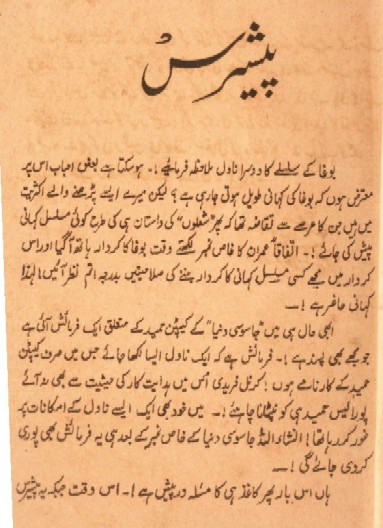 پیشرس
بوغا کے سلسلے کا دوسرا ناول ملاحظہ فرمائیے!۔ ہو سکتا ہے بعض احباب اس پر
معترض ہوں کہ بوغا کی کہانی طویل ہوتی جا رہی ہے؟ لیکن میرے ایسے پڑھنے والے اکثریت
میں ہیں جن کا عرصے سے تقاضہ تھا کہ پھر ”شعلوں“ کی داستان ہی کی طرح کوئی مسلسل کہانی
پیش کی جائے!۔ اتفاقاً عمران کا خاص نمبر لکھتے وقت بوغا کا کردار ہاتھ آگیا اور اس
کردار میں مجھے کسی مسلسل کہانی کا کردار بننے کی صلاحیتیں بدرجہ اتم نظر آئیں! لہٰذا
کہانی حاضر ہے!۔
ابھی حال ہی میں ”جاسوسی دنیا“ کے کیپٹن حمید کے متعلق ایک فرمائش آئی ہے
جو مجھے بھی پسند ہے!۔ فرمائش ہے کہ ایک ناول ایسا لکھا جائے جس میں صرف کیپٹن
حمید کے کارنامے ہوں! کرنل فریدی اُس میں ہدایت کار کی حیثیت سے بھی نہ آئے
پورا کیس حمید ہی کو نپٹانا چاہئے!۔ میں خود بھی ایک ایسے ناول کے امکانات پر
غور کر رہا تھا! انشاء اللہ جاسوسی دنیا کے خاص نمبر کے بعد ہی یہ فرمائش بھی پوری
کر دی جائے گی!۔
ہاں اس بار پھر کاغذ ہی کا مسئلہ درپیش ہے!۔ اس وقت جبکہ یہ پیشرس